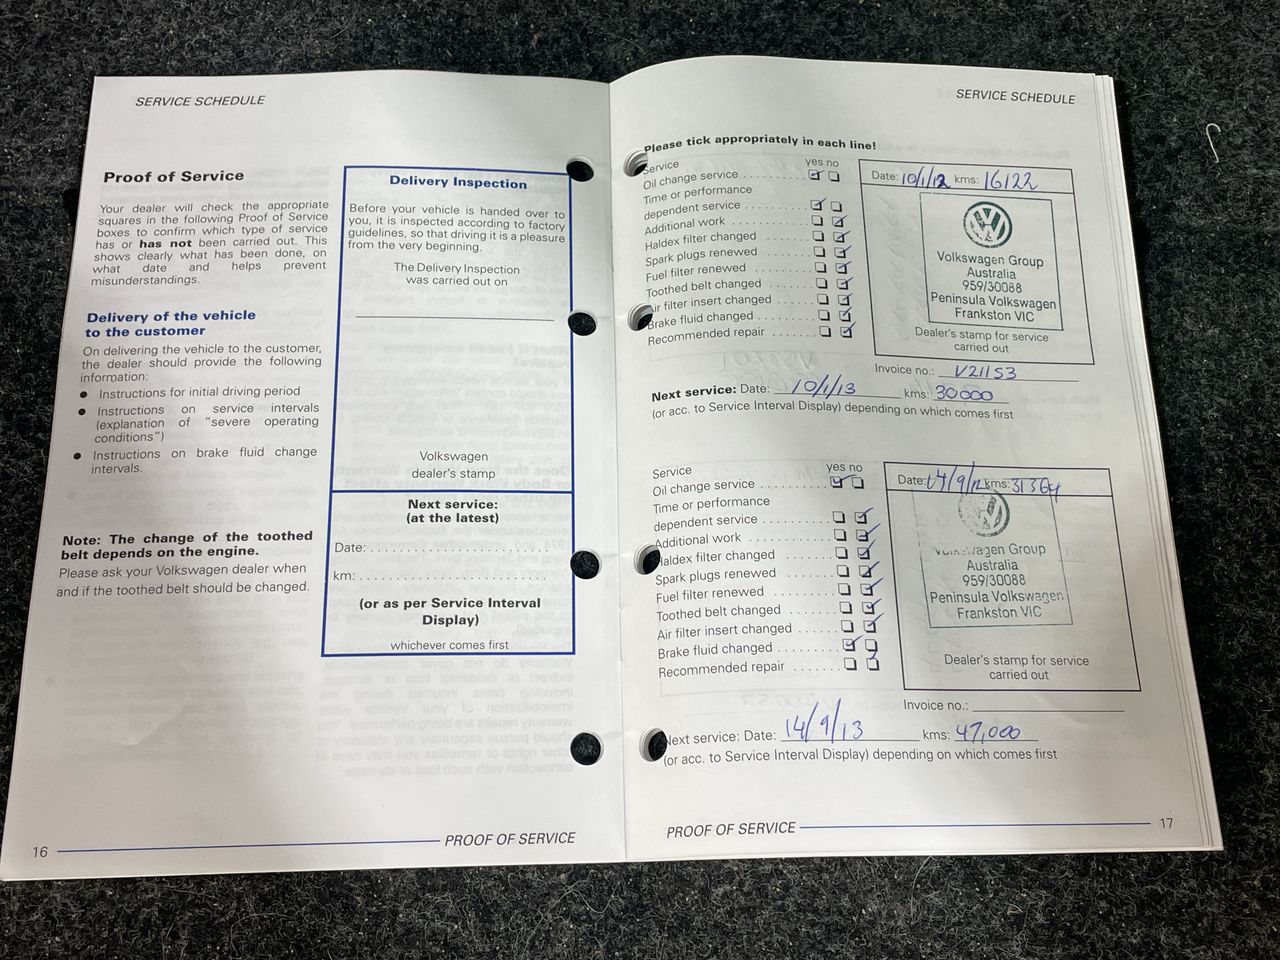 SERVICE SCHEDULE
Proof of Service
Your dealer will check the appropriate
squares in the following Proof of Service
boxes to confirm which type of service
has or has not been carried out. This
shows clearly what has been done, on
what date and helps prevent
misunderstandings.
Delivery of the vehicle
to the customer
On delivering the vehicle to the customer,
the dealer should provide the following
information:
● Instructions for initial driving period
● Instructions on service intervals
(explanation of "severe operating
conditions")
● Instructions on brake fluid change
intervals.
Note: The change of the toothed
belt depends on the engine.
Please ask your Volkswagen dealer when
and if the toothed belt should be changed.
Delivery Inspection
Before your vehicle is handed over to
you, it is inspected according to factory
guidelines, so that driving it is a pleasure
from the very beginning.
The Delivery Inspection
was carried out on
Volkswagen
dealer's stamp
Next service:
(at the latest)
Date:
km:
(or as per Service Interval
Display)
whichever comes first
16 PROOF OF SERVICE
SERVICE SCHEDULE
Please tick appropriately in each line!
Service yes no
Oil change service
Time or performance
dependent service
Additional work
Haldex filter changed
Spark plugs renewed
Fuel filter renewed
Toothed belt changed
Air filter insert changed
Brake fluid changed
Recommended repair
Date: 10/1/12 kms: 16122
Volkswagen Group
Australia
959/30088
Peninsula Volkswagen
Frankston VIC
Dealer's stamp for service
carried out
Invoice no.: V21153
Next service: Date: 10/1/13 kms: 30000
(or acc. to Service Interval Display) depending on which comes first
Service yes no
Oil change service
Time or performance
dependent service
Additional work
Haldex filter changed
Spark plugs renewed
Fuel filter renewed
Toothed belt changed
Air filter insert changed
Brake fluid changed
Recommended repair
Date: 14/9/12 kms: 31364
Volkswagen Group
Australia
959/30088
Peninsula Volkswagen
Frankston VIC
Dealer's stamp for service
carried out
Invoice no.:
Next service: Date: 14/9/13 kms: 47,000
(or acc. to Service Interval Display) depending on which comes first
PROOF OF SERVICE 17